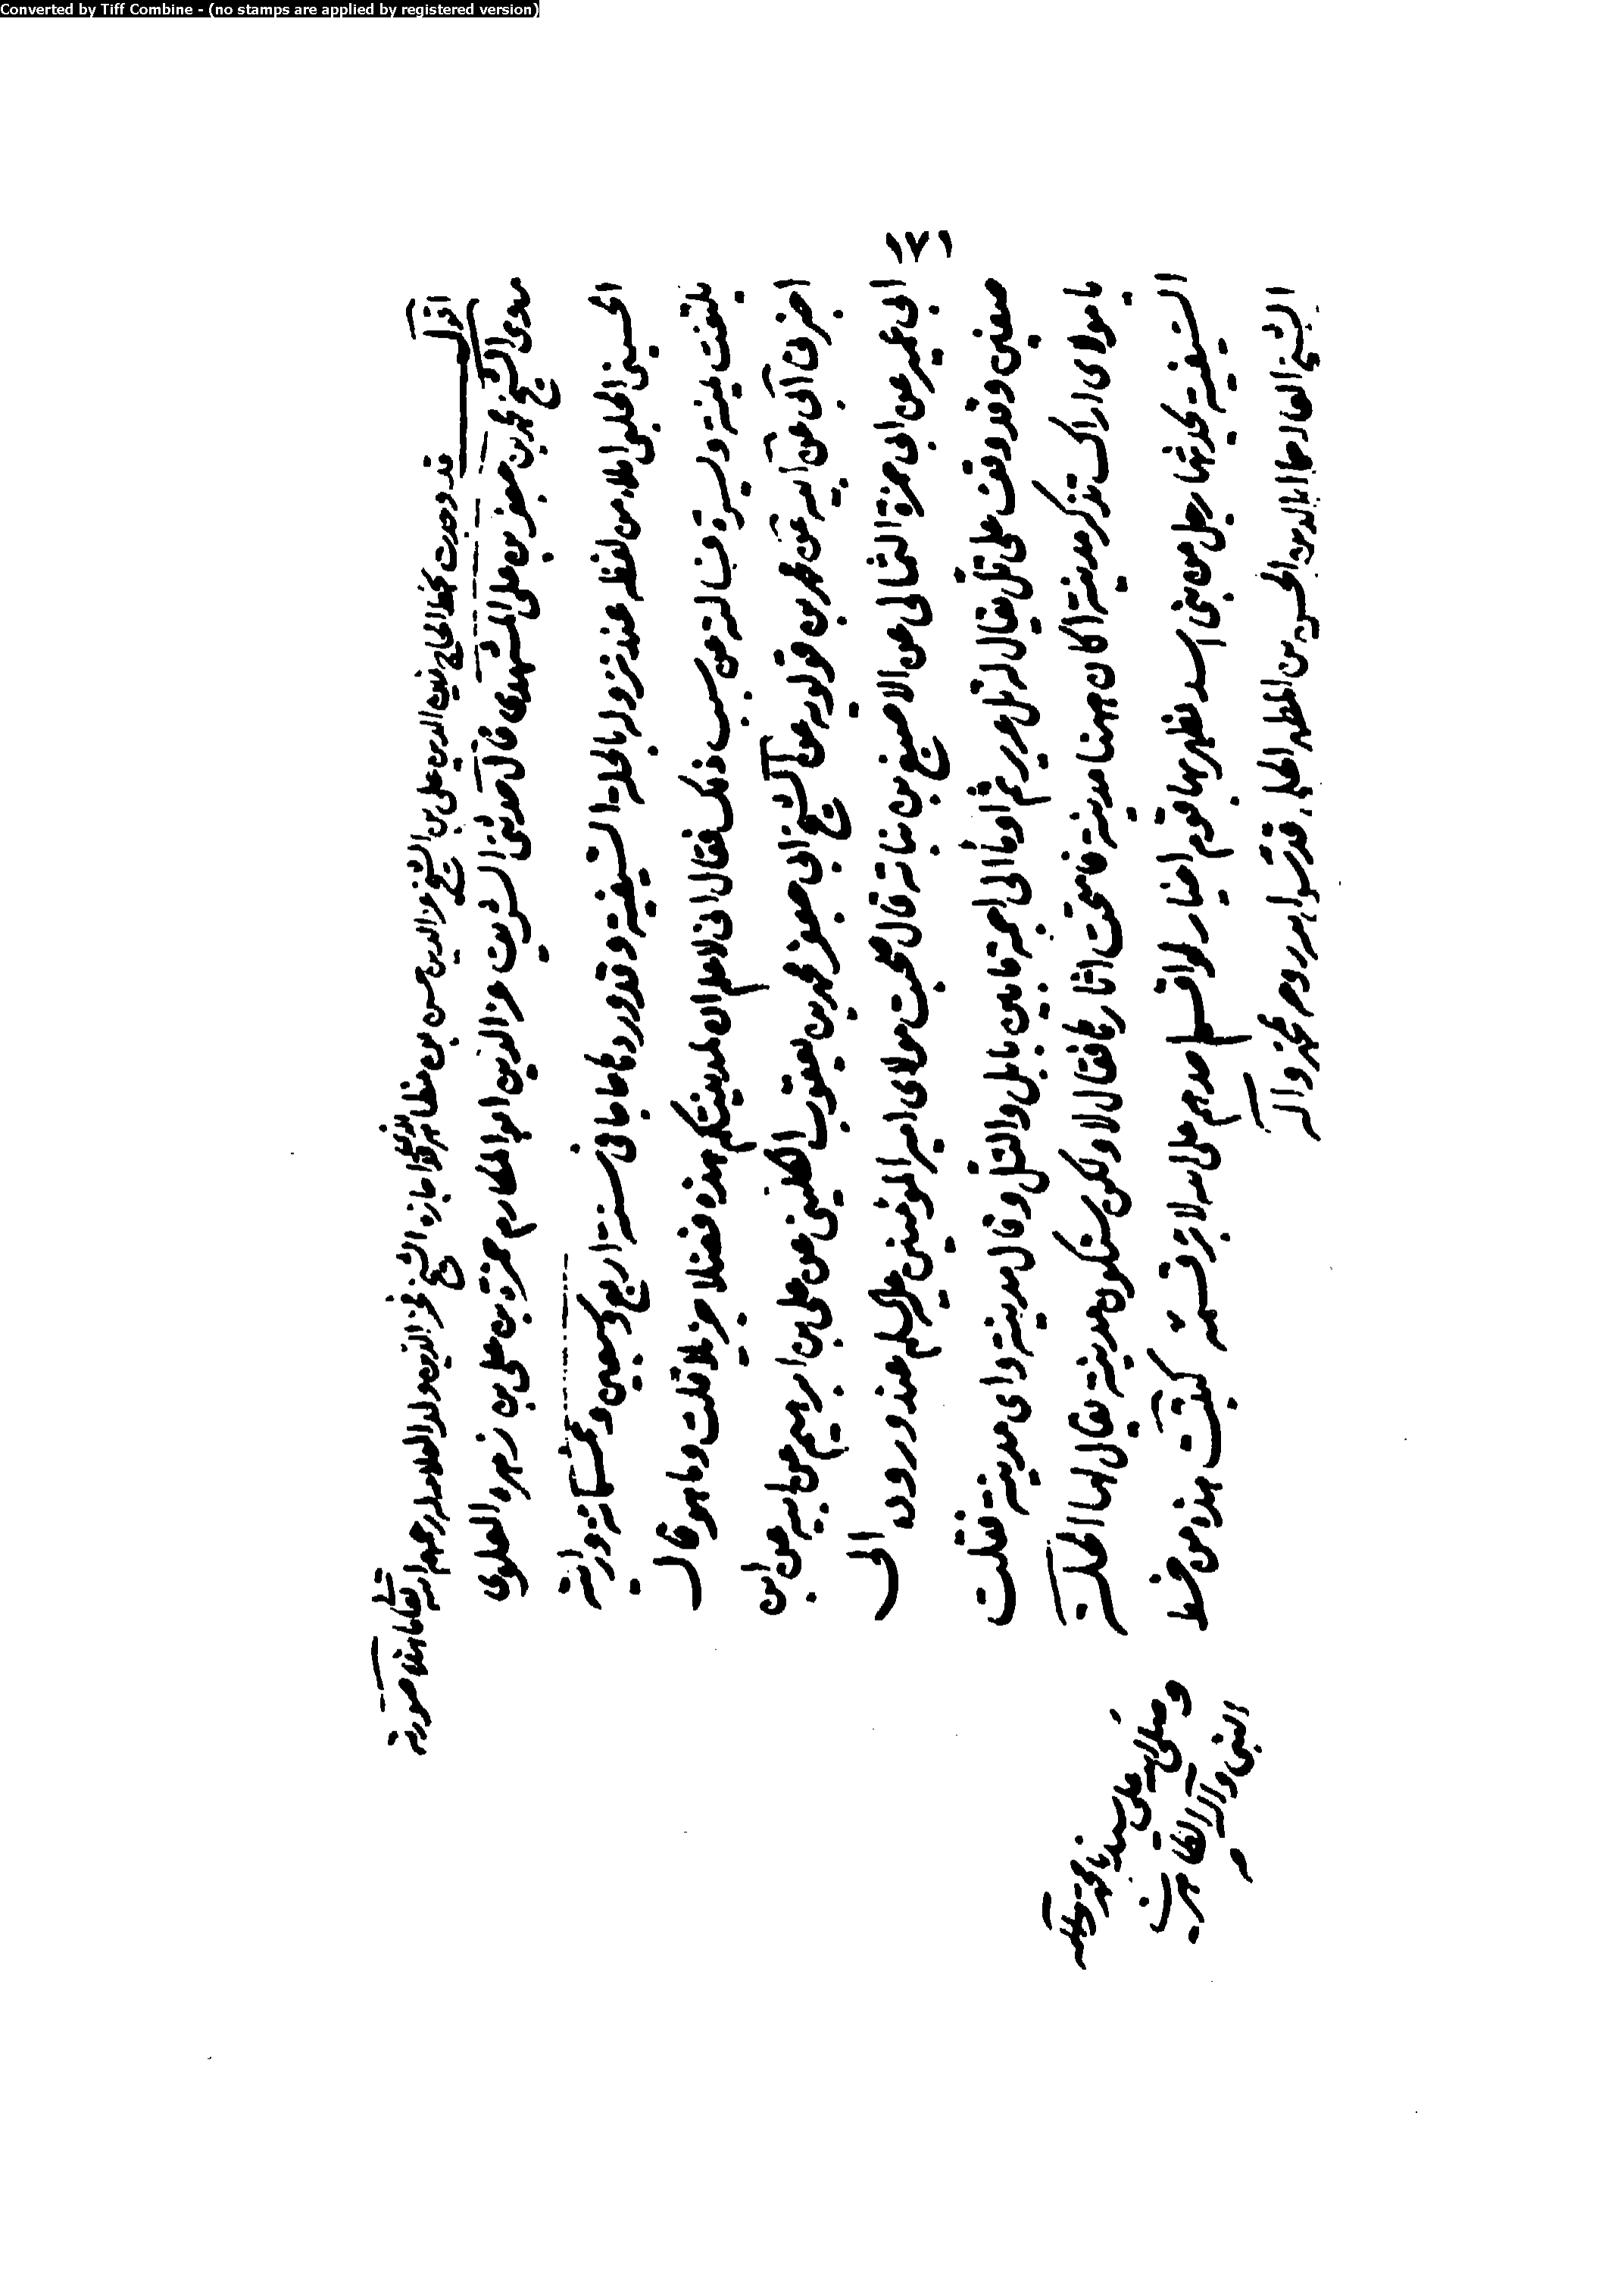 Converted by Tiff Combine - (no stamps are applied by registered version)
١٣١
اقول قد وجدت بخط الحاج زين الدين علي بن الشيخ عز الدين حسن بن مظاهر الذي اجازه الشيخ فخر الدين ولد العلامه له رحمهم الله تعالى ما هذا صورته
روى الشيخ محمد بن جعفر بن علي المشهدى قال حدثنى الشريف عز الدين ابو المكارم حمزة بن على بن زهره العلوى
الحسينى الحلبى املاء من لفظه عند نزوله بالحلة السيفية وقد وردها حاجا فى سنة اربع وسبعين وخمسمائة ورايته
يلتفت يمنة ويسرة فسالته عن سبب ذلك فقال انى لاعلم ان لمدينتكم هذه فضلا جزيلا قلت وما هو قال
اخبرنى ابى عن ابيه عن محمد بن قولويه عن الشيخ ابى جعفر محمد بن يعقوب الكلينى عن على بن ابرهيم عن ابيه عن ابن
ابى عمير عن ابى حمزة الثمالى عن الاصبغ بن نباتة قال صحبت مولاى امير المؤمنين عليه السلم عند وروده الى
صفين وقد وقف على تل يقال له تل عرير ثم اومأ الى اجمة ما بين بابل والتل وقال مدينة واى مدينة فقلت
يا مولاى اراك تذكر مدينة اكان ههنا مدينة فامتحت اثارها فقال لا ولكن ستكون مدينة يقال لها الحلة
السيفية يحدثها رجل من بنى اسد يظهر بها قوم اخيار لو اقسم احدهم على الله لابر قسمه كتبت هذه من خط
الشيخ العالم بن الحسن بن المطهر الحلى قدس الله روحه بمحمد وآله
وصلى الله على سيدنا محمد وآله
النبى وآله الطاهرين